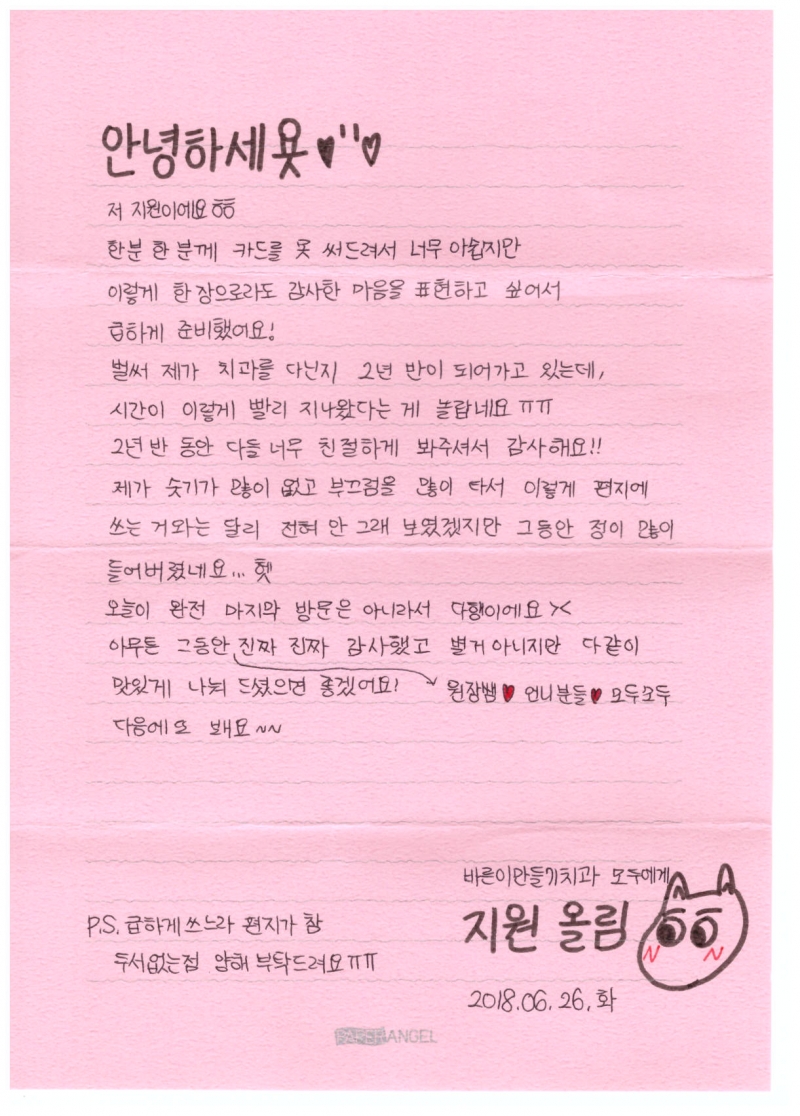 안녕하세욧♥''♡
저 지원이에요ㅎㅎ
한분 한 분께 카드를 못 써드려서 너무 아쉽지만
이렇게 한 장으로라도 감사한 마음을 표현하고 싶어서
급하게 준비했어요!
벌써 제가 치과를 다닌지 2년 반이 되어가고 있는데,
시간이 이렇게 빨리 지나왔다는 게 놀랍네요 ㅠㅠ
2년 반 동안 다들 너무 친절하게 봐주셔서 감사해요!!
제가 숫기가 많이 없고 부끄럼을 많이 타서 이렇게 편지에
쓰는 거와는 달리 전혀 안 그래 보였겠지만 그동안 정이 많이
들어버렸네요... 헷
오늘이 완전 마지막 방문은 아니라서 다행이에요 ><
아무튼 그동안 진짜 진짜 감사했고 별거 아니지만 다같이
맛있게 나눠 드셨으면 좋겠어요! 원장쌤♥ 언니분들♥ 모두모두
다음에 또 봬요 ~~
바른이만들기치과 모두에게
지원 올림
P.S. 급하게 쓰느라 편지가 참
두서없는점 양해 부탁드려요ㅠㅠ
2018.06.26.화
PAPER ANGEL